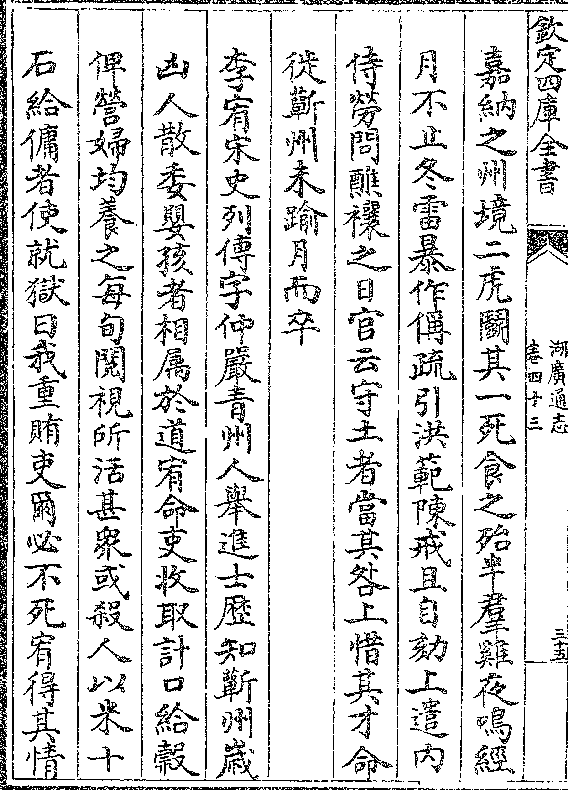 欽定四庫全書
湖廣通志
卷四十三
三十五
嘉納之州境二虎鬬其一死食之殆半羣雞夜鳴經
月不止冬雷暴作偁疏引洪範陳戒且自劾上遣内
侍勞問醮禳之日官云守土者當其咎上惜其才命
徙蘄州未踰月而卒
李宥宋史列傳字仲嚴青州人舉進士歴知蘄州嵗
凶人散委嬰孩者相属於道宥命吏收取計口給榖
俾營婦均養之每旬閱視所活甚衆或殺人以米十
石給傭者使就獄曰我重賄吏爾必不死宥得其情